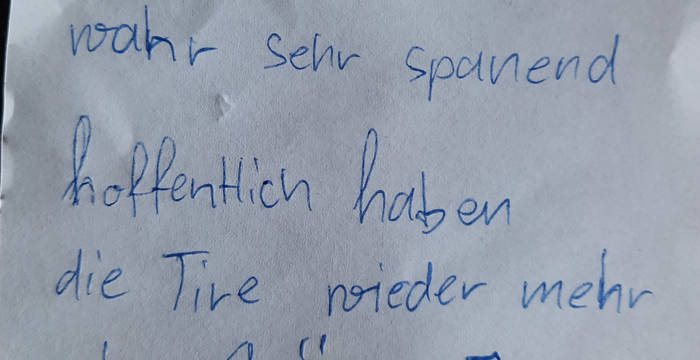 wahr sehr spanend
hoffentlich haben
die Tire wieder mehr